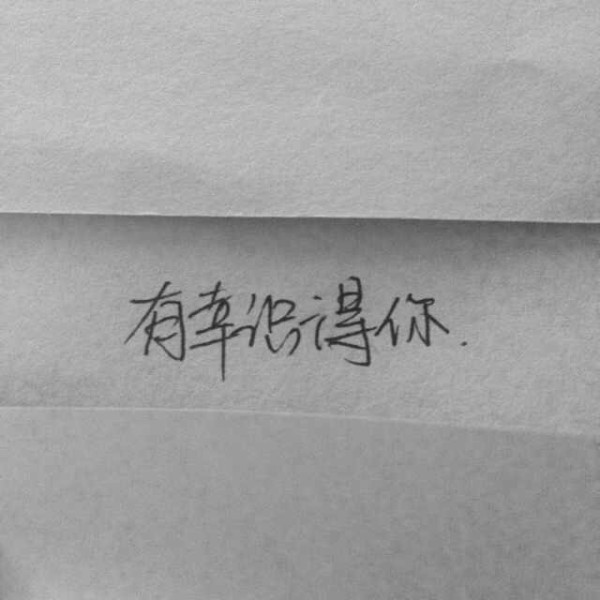 有幸识得你.